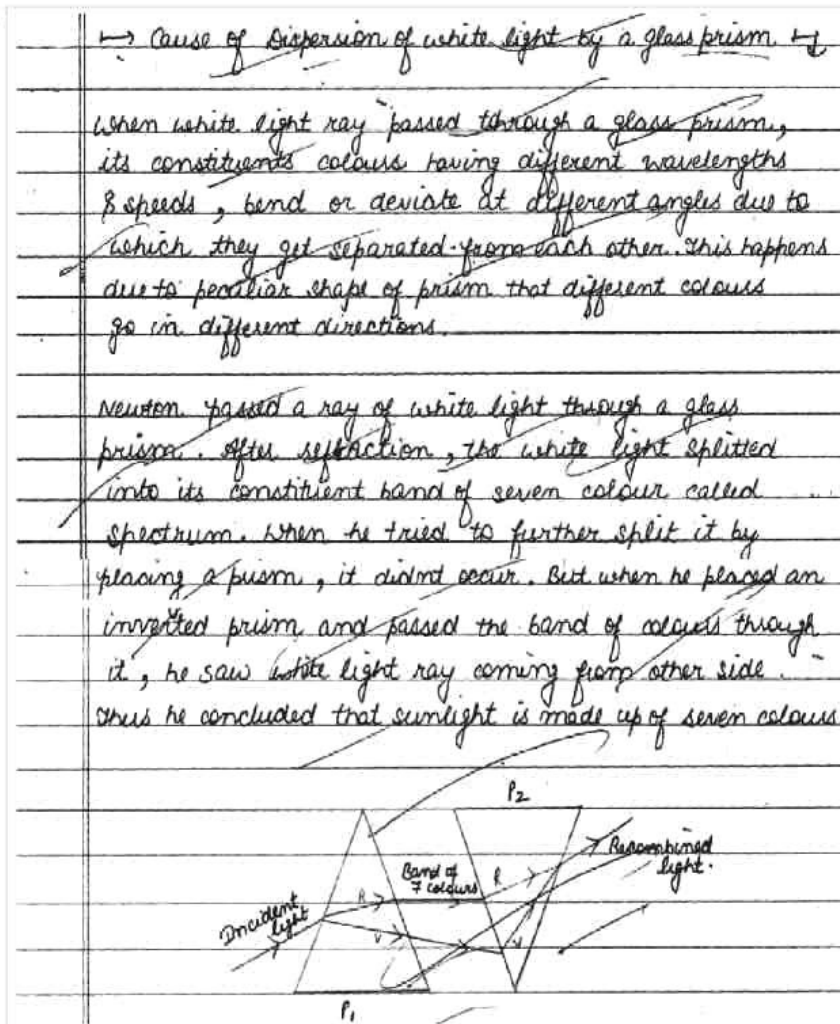 ↦ Cause of Dispersion of white light by a glass prism ↤
When white light ray passed through a glass prism,
its constituents colours having different wavelengths
& speeds, bend or deviate at different angles due to
which they get separated from each other. This happens
due to peculiar shape of prism that different colours
go in different directions.
Newton passed a ray of white light through a glass
prism. After refraction, the white light splitted
into its constituent band of seven colour called
spectrum. When he tried to further split it by
placing a prism, it didnt occur. But when he placed an
inverted prism and passed the band of colours through
it, he saw white light ray coming from other side.
Thus he concluded that sunlight is made up of seven colours
P2
Incident
light
R
V
Band of
7 colours
R
V
Recombined
light.
P1